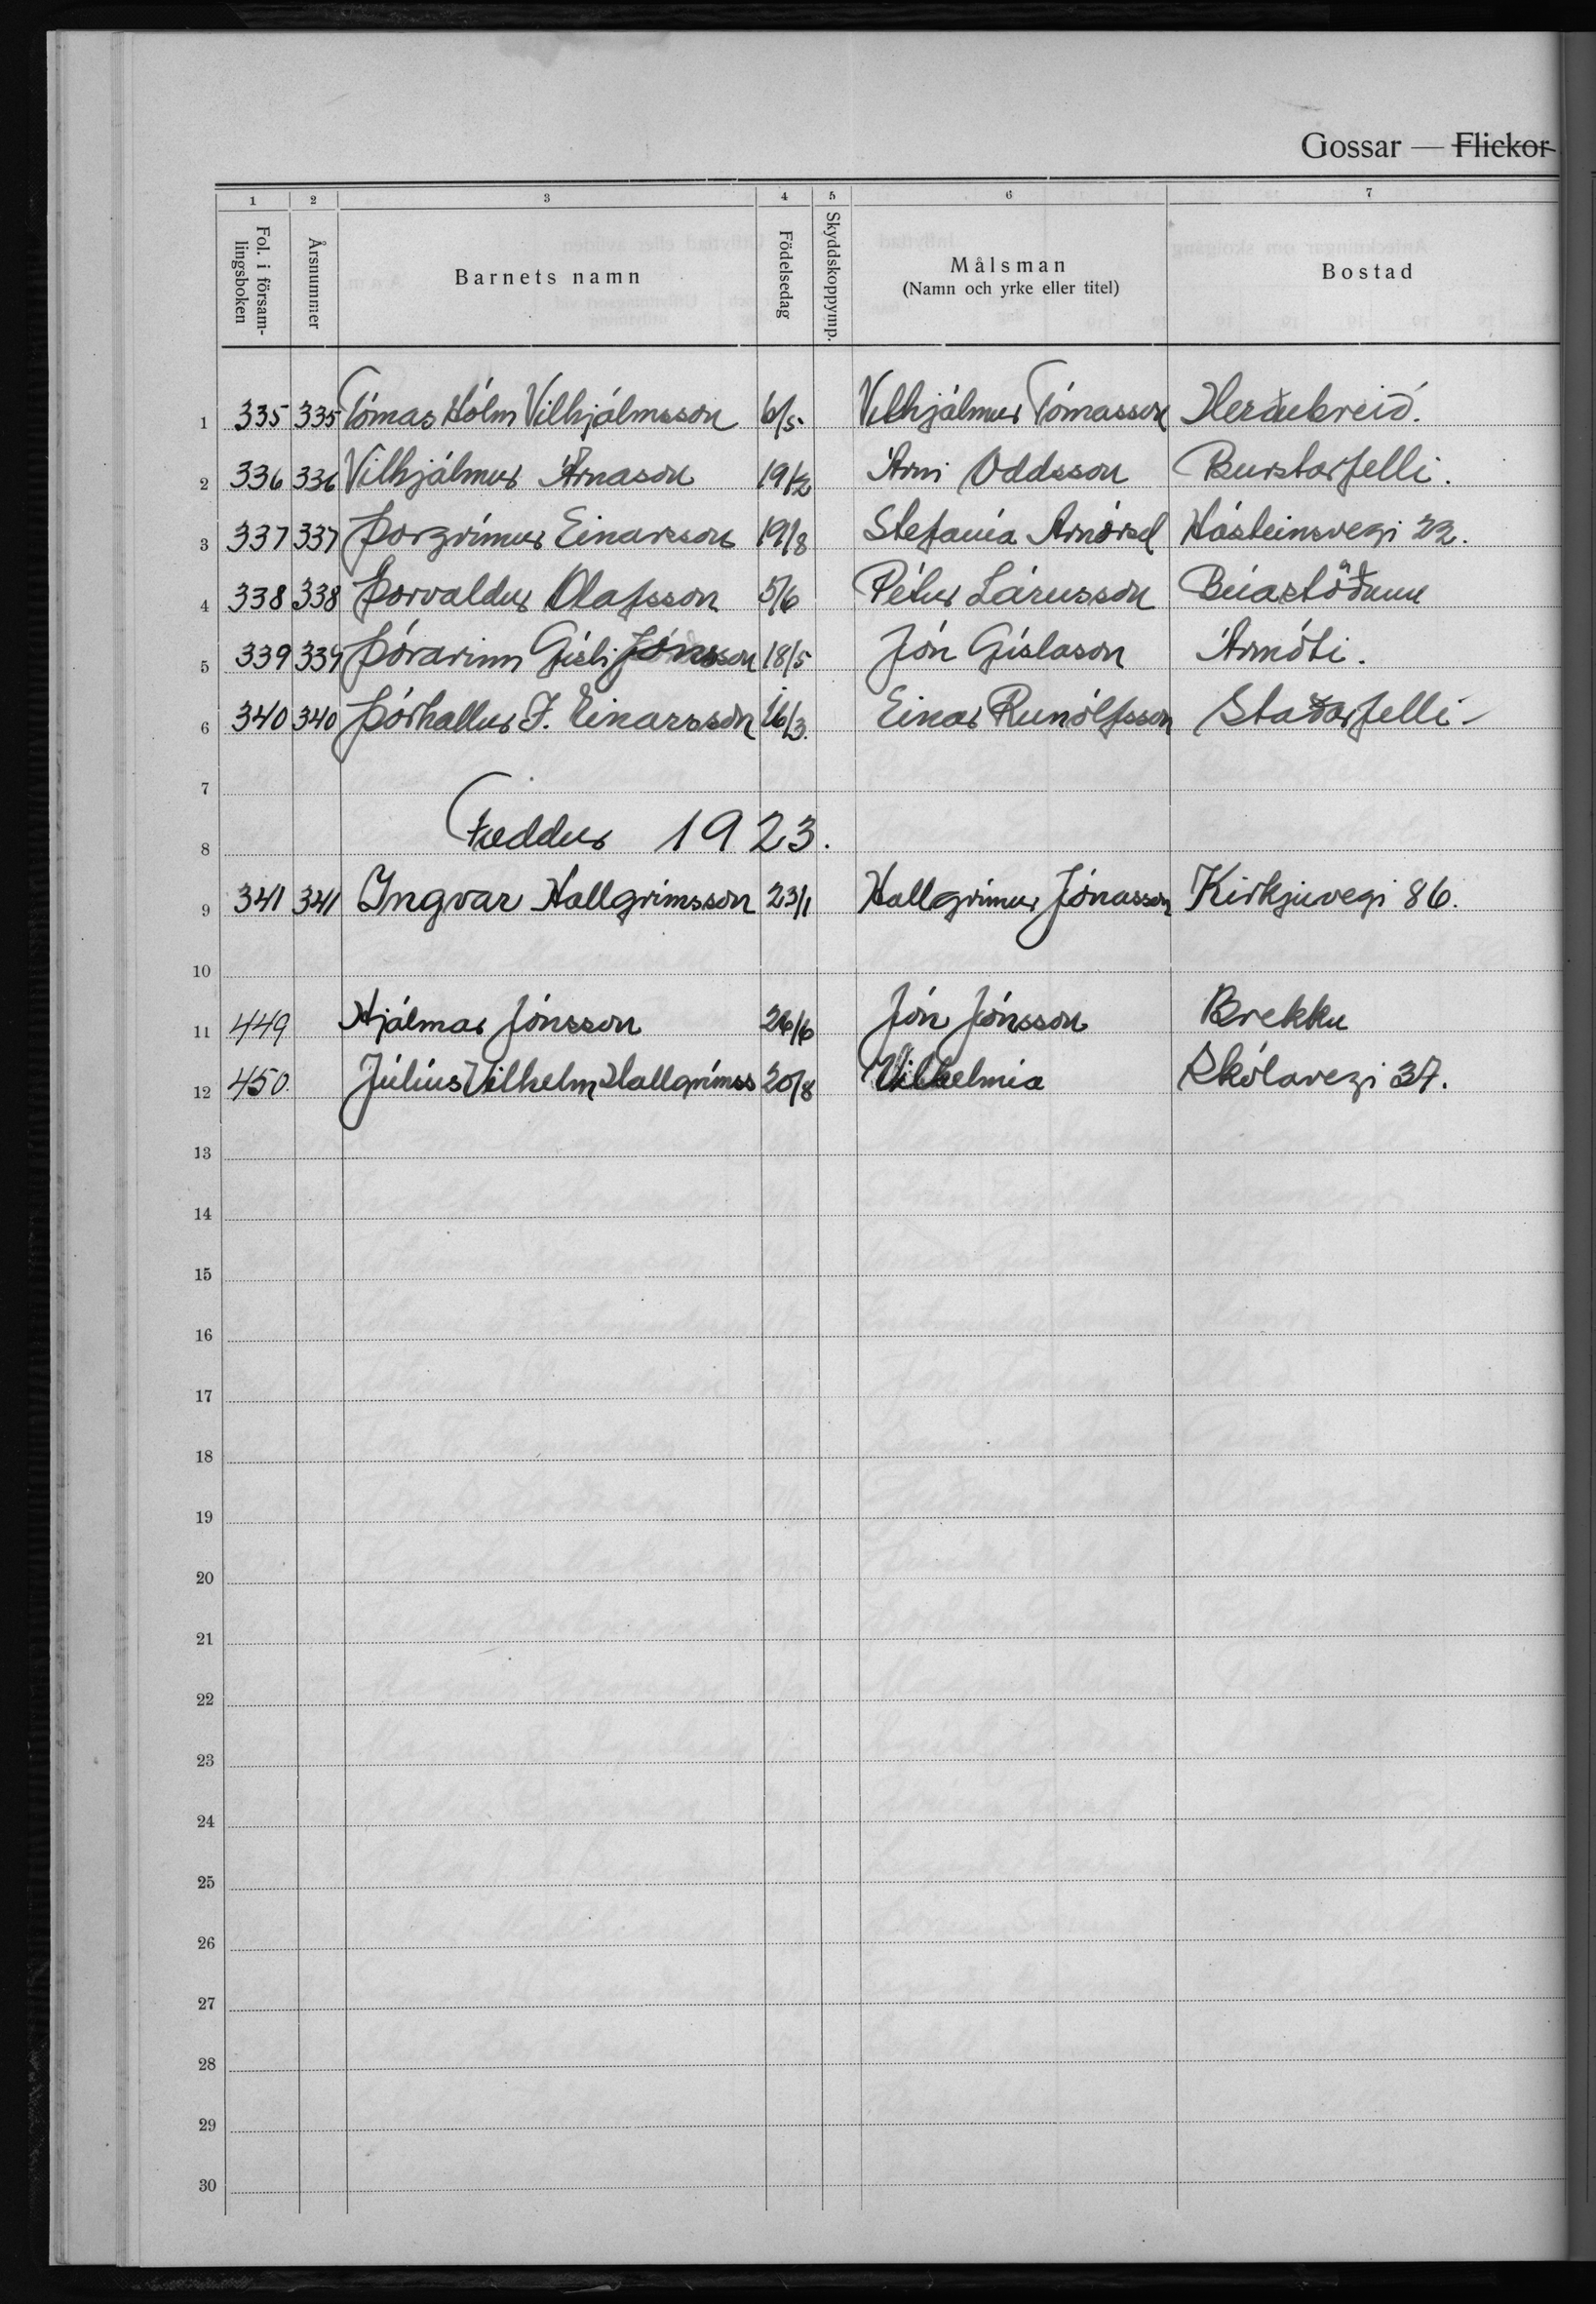 Gossar — Flickor
1 2 3 4 5 6 7
Fol. i försam-
lingsboken
Årsnummer
Barnets namn
Födelsedag
Skyddskoppymp.
Målsman
(Namn och yrke eller titel)
Bostad
1 335 335 Tómas Hólm Vilhjálmsson 6/5 Vilhjálmur Tómasson Herðubreið.
2 336 336 Vilhjálmur Árnason 19/12 Árni Oddsson Burstarfelli.
3 337 337 Þorgrímur Einarsson 19/8 Stefanía Arnórsd Hásteinsvegi 22.
4 338 338 Þorvaldur Ólafsson 5/6 Pétur Lárusson Búastöðum
5 339 339 Þórarinn Gísli Jónsson 18/5 Jón Gíslason Ármóti.
6 340 340 Þórhallur J. Einarsson 16/3. Einar Runólfsson Staðarfelli
7
8 Fæddur 1923.
9 341 341 Ingvar Hallgrímsson 23/1 Hallgrímur Jónasson Kirkjuvegi 86.
10
11 449 Hjálmar Jónsson 26/6 Jón Jónsson Brekku
12 450. Júlíus Vilhelm Hallgrímss 20/8 Vilhelmía Skólavegi 37.
13
14
15
16
17
18
19
20
21
22
23
24
25
26
27
28
29
30